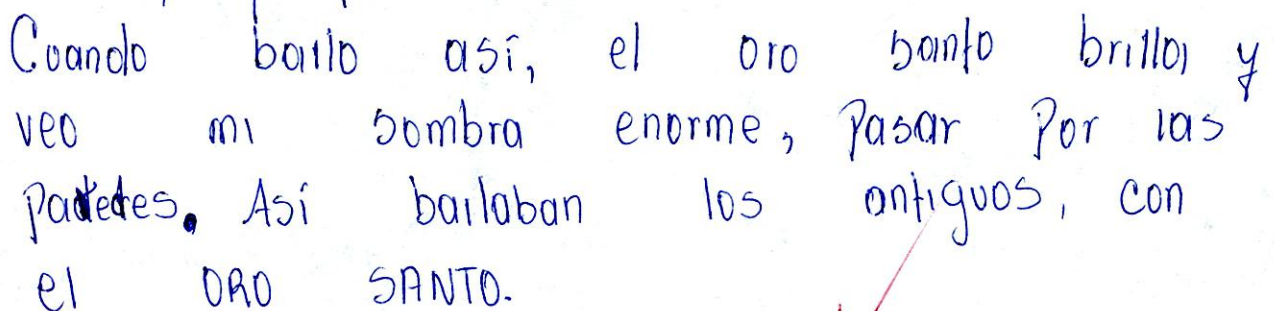 Cuando bailo así, el oro santo brilla, y
veo mi sombra enorme, pasar por las
paredes. Así bailaban los antiguos, con
el ORO SANTO.